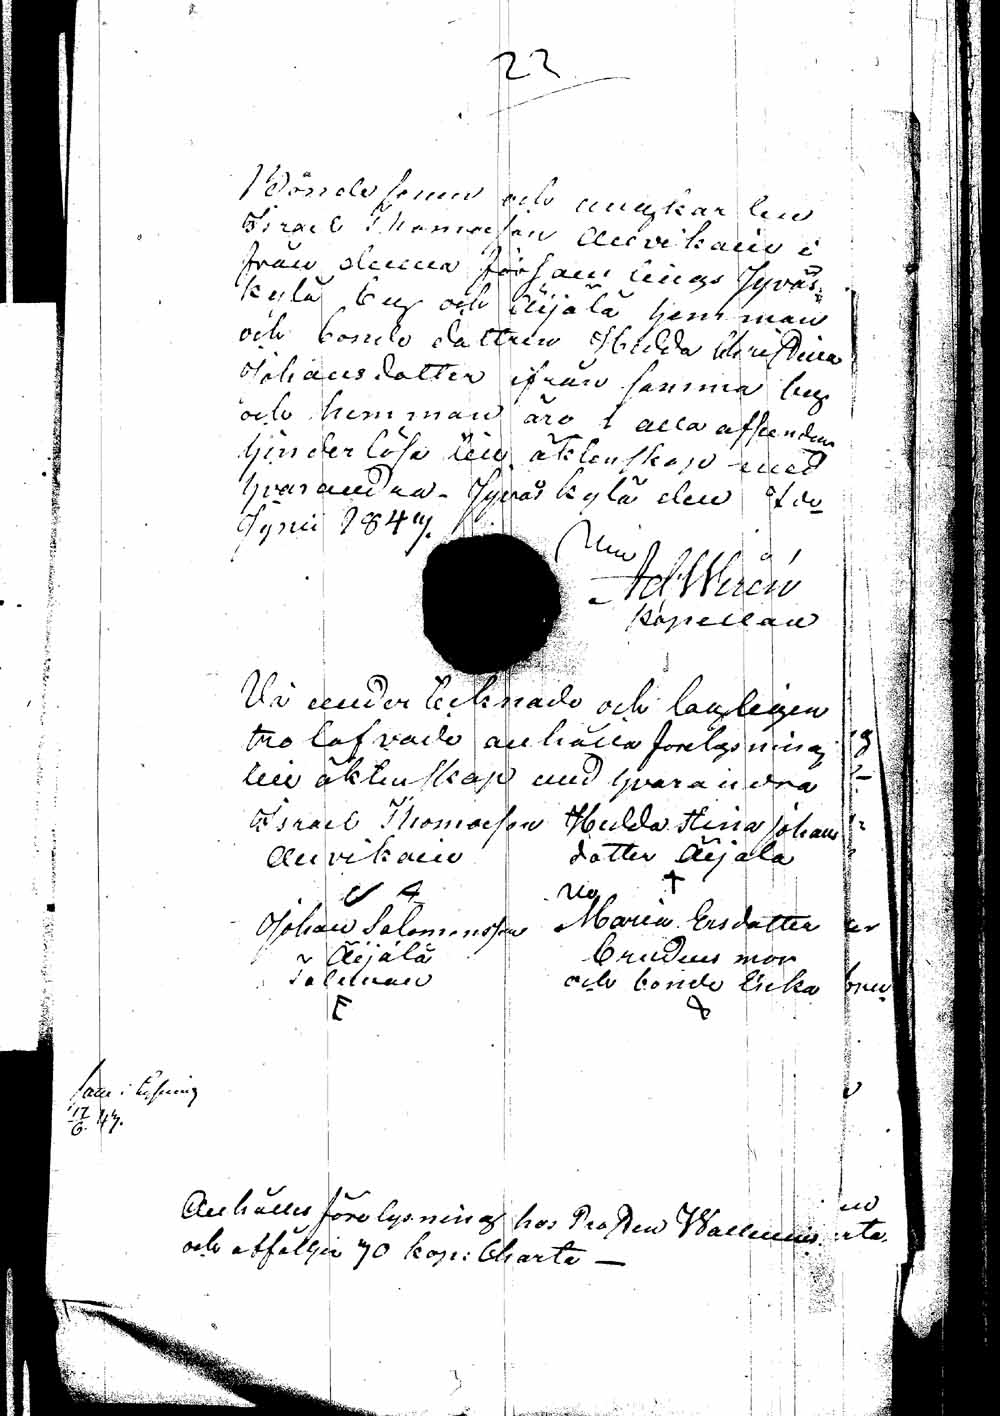 22
Bönde sonen och ungkarlen
Israel Thomasson Auvikain i
från denna församlings Jyväs-
kylä by och Äijälä hemman
och bonde dattren Hedda Christina
Johansdatter ifrån samma by
och hemman äro i alla afseenden
hinderlösa till äktenskap med
hvarandra. Jyväskylä den 7de
Juni 1847.
Ad. Wirén
Kapellan
Vi undertecknade och lagligen
trolofvade anhålla förelysning
till äktenskap med hvarandra
Israel Thomasson Hedda Stina Johans
Auvikain datter Äijälä
Johan Salomonsson Maria Ersdatter
Äijälä brudens mor
Taleman och bonde Erika
i lysning
17/6 47.
Anhålles förelysning hos Prosten Wallenius
och åtföljer 70 kop: Charta —